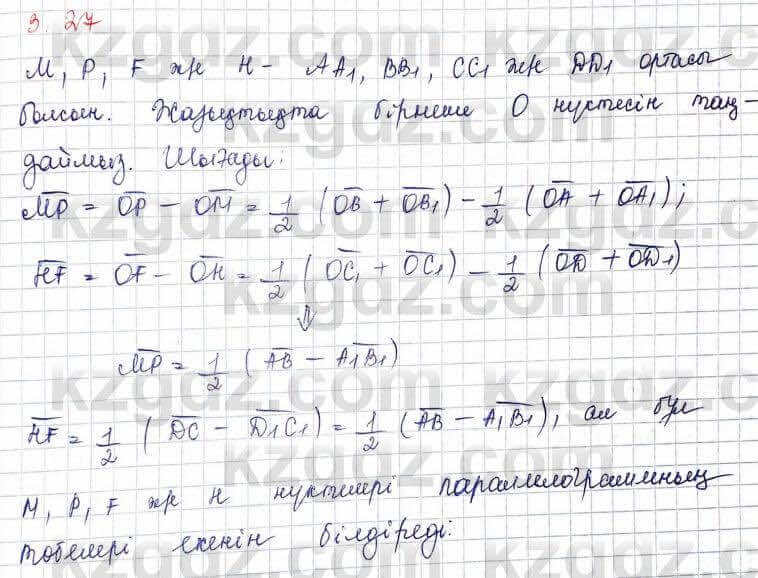 3.27
M, P, F жн H - AA₁, BB₁, CC₁ жн DD₁ ортасы
болсын. Жазықтықта бірнеше O нүктесін таң-
даймыз. Шығады:
M̅P̅ = O̅P̅ - O̅M̅ = 1/2 (O̅B̅ + O̅B̅₁) - 1/2 (O̅A̅ + O̅A̅₁);
H̅F̅ = O̅F̅ - O̅H̅ = 1/2 (O̅C̅₁ + O̅C̅₁) - 1/2 (O̅D̅ + O̅D̅₁)
⇓
M̅P̅ = 1/2 (A̅B̅ - A̅₁B̅₁)
H̅F̅ = 1/2 (D̅C̅ - D̅₁C̅₁) = 1/2 (A̅B̅ - A̅₁B̅₁), ал бұл
M, P, F жн H нүктелері параллелограммның
төбелері екенін білдіреді.
kzgdz.com